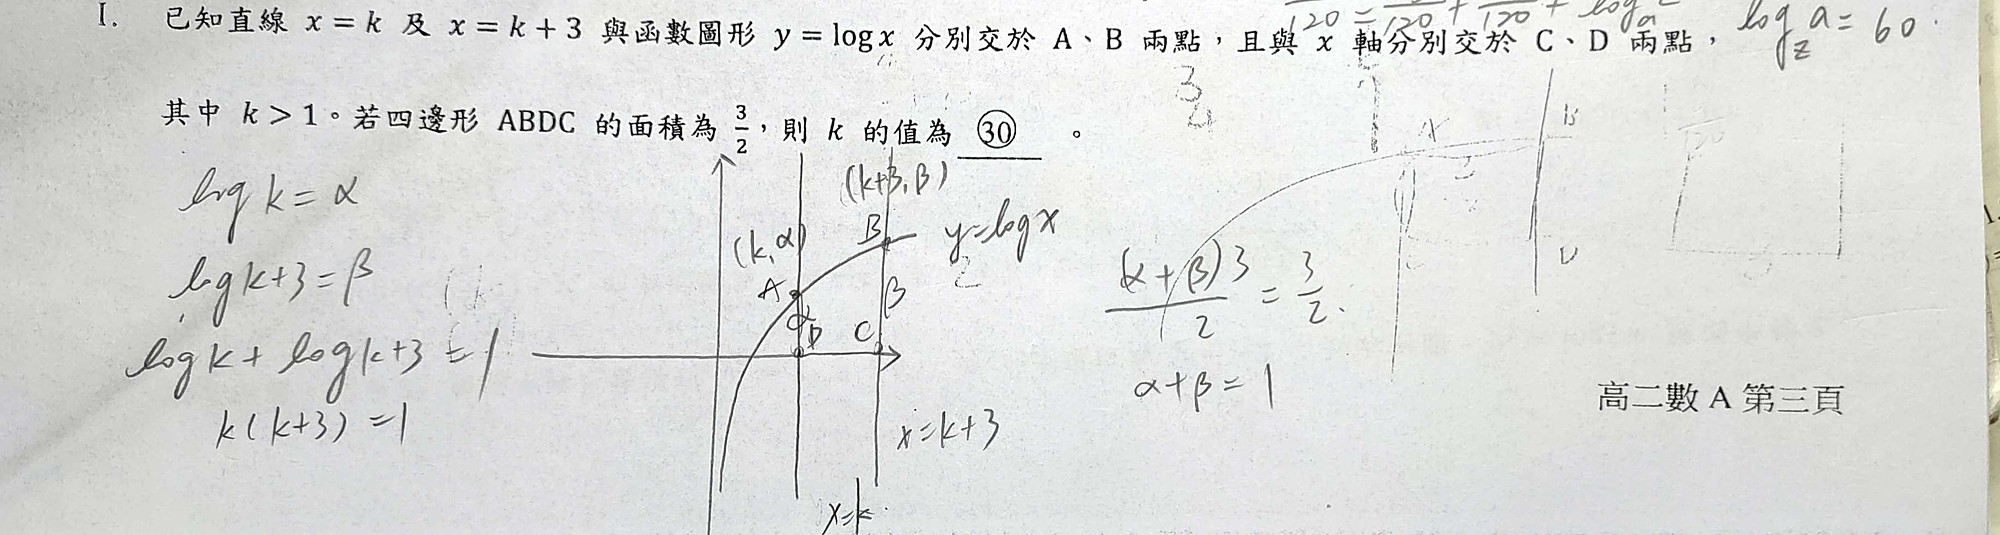 I. 已知直線 x = k 及 x = k + 3 與函數圖形 y = log x 分別交於 A、B 兩點，且與 x 軸分別交於 C、D 兩點，
log₂ a = 60
其中 k > 1。若四邊形 ABDC 的面積為 3/2，則 k 的值為 ㉚ 。
3
4
A
B
log k = α
(k+3, β)
(k, α)
B
y = log x
log k+3 = β
A
β
α
(α+β)3/2 = 3/2.
D
C
log k + log k+3 = 1
α+β = 1
高二數 A 第三頁
k(k+3) = 1
x = k+3
x = k